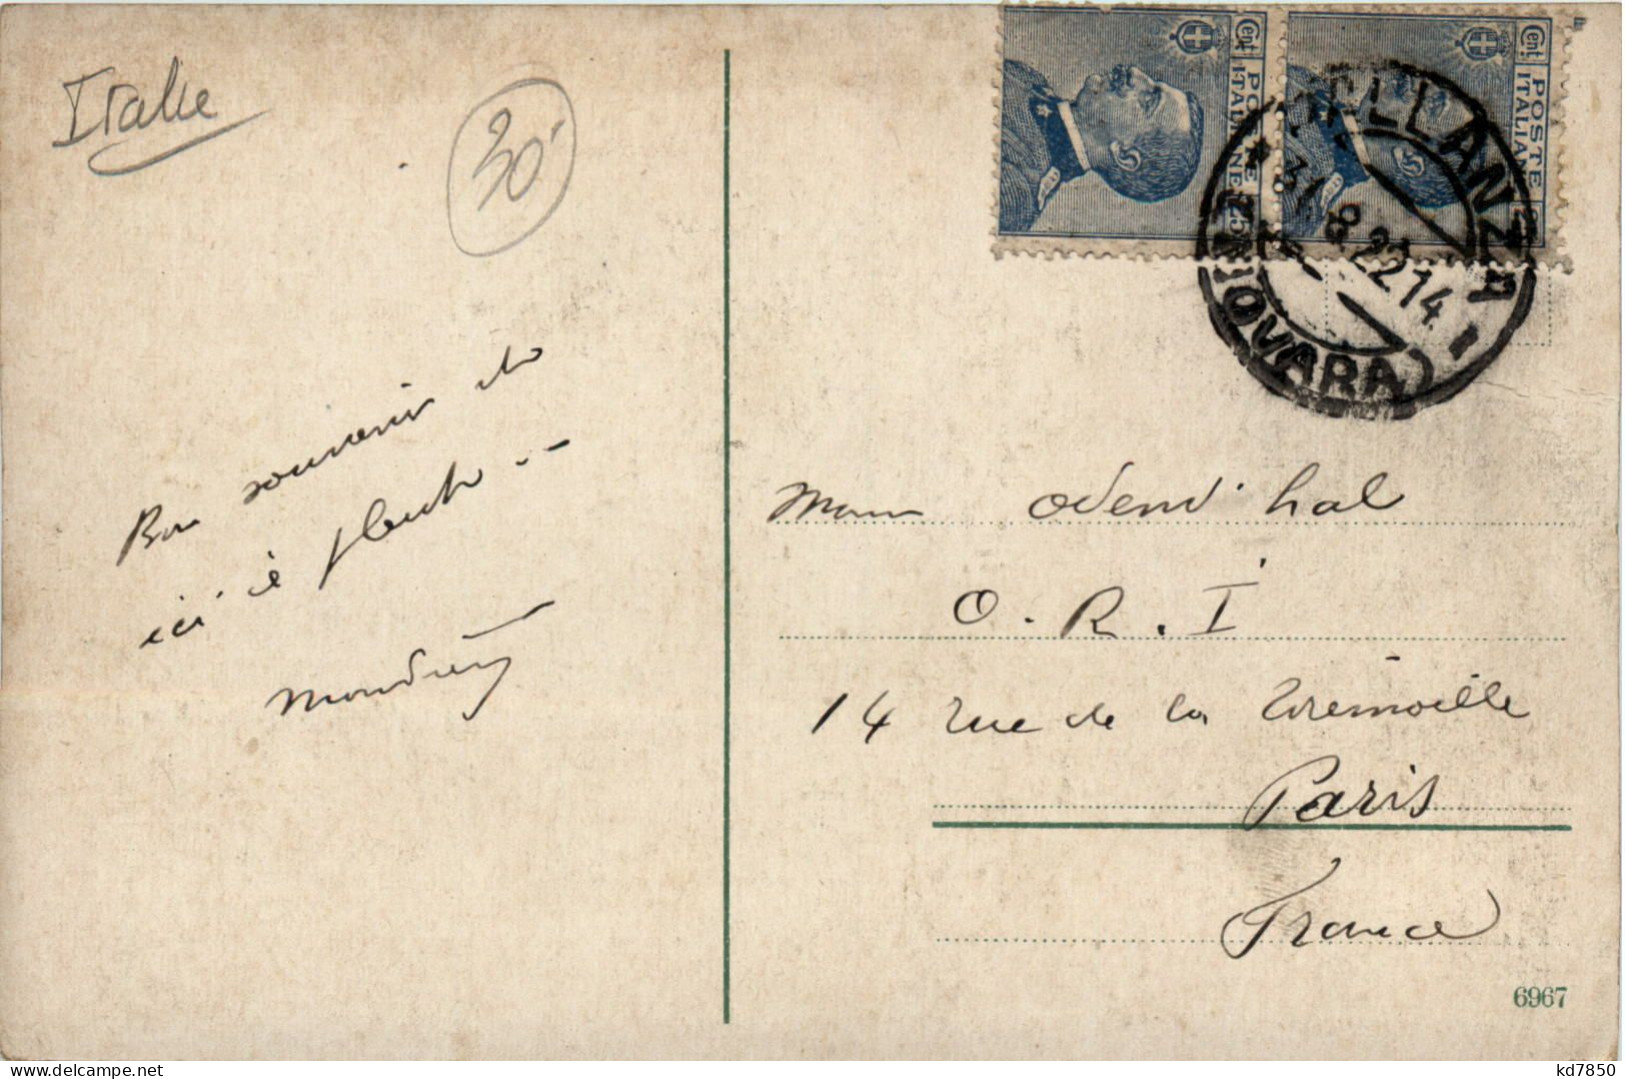 Italie
30
Cent
POSTE
ITALIANE
25
Cent
POSTE
ITALIANE
25
PALLANZA
31.8.22 14
(NOVARA)
Bon souvenir de
ici
Odend'hal
O. R. I
14 rue de la Trémoille
Paris
France
6967
kd7850